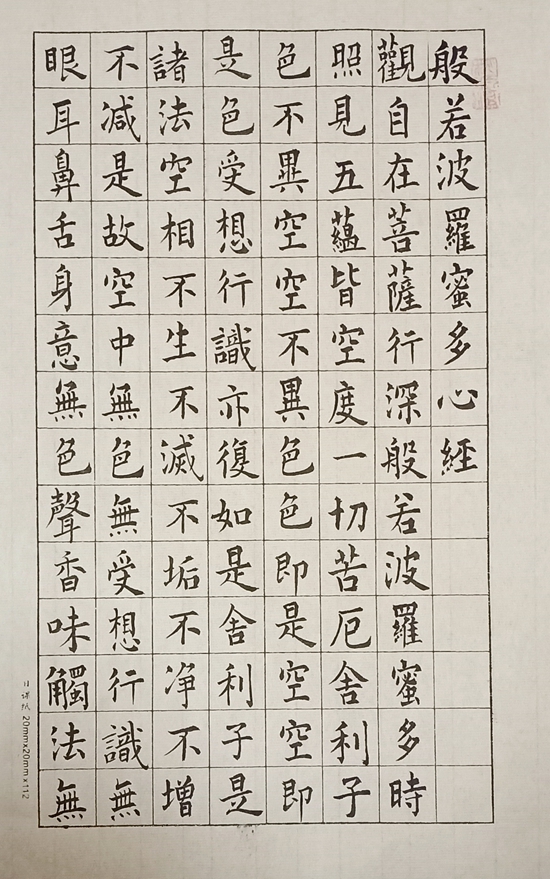 般若波羅蜜多心經
觀自在菩薩行深般若波羅蜜多時
照見五蘊皆空度一切苦厄舍利子
色不異空空不異色色即是空空即
是色受想行識亦復如是舍利子是
諸法空相不生不滅不垢不净不增
不減是故空中無色無受想行識無
眼耳鼻舌身意無色聲香味觸法無
20mmx20mmx112